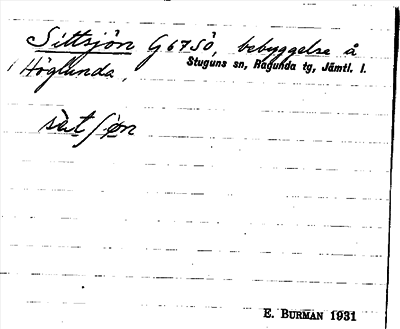 Sittsjön G67SÖ, bebyggelse å
Stuguns sn, Ragunda tg, Jämtl. l.
Höglunda.
sìt/øn
E. BURMAN 1931